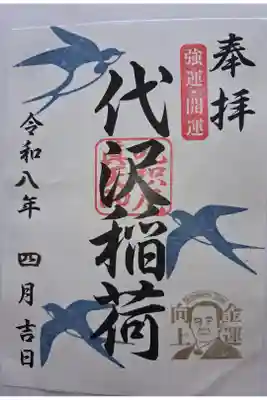 奉拝
強運・開運
代沢稲荷
金運
向上
令和八年 四月 吉日